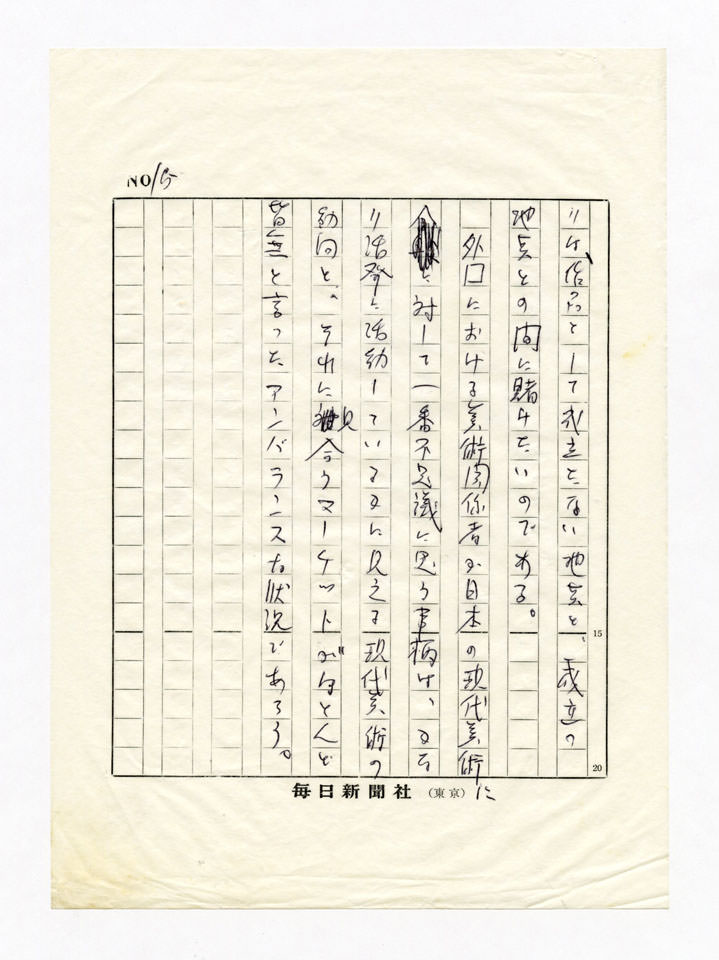 NO 15
りは、信念として成立しない地点と、成立の
地点との間に賭けたいのである。
外国における美術関係者が日本の現代美術に
対して一番不思議に思う事柄は、
り活発に活動している に見える現代美術の
動向と、それに見合うマーケットがほとんど
皆無と言ったアンバランスな状況であろう。
15
20
毎日新聞社(東京)